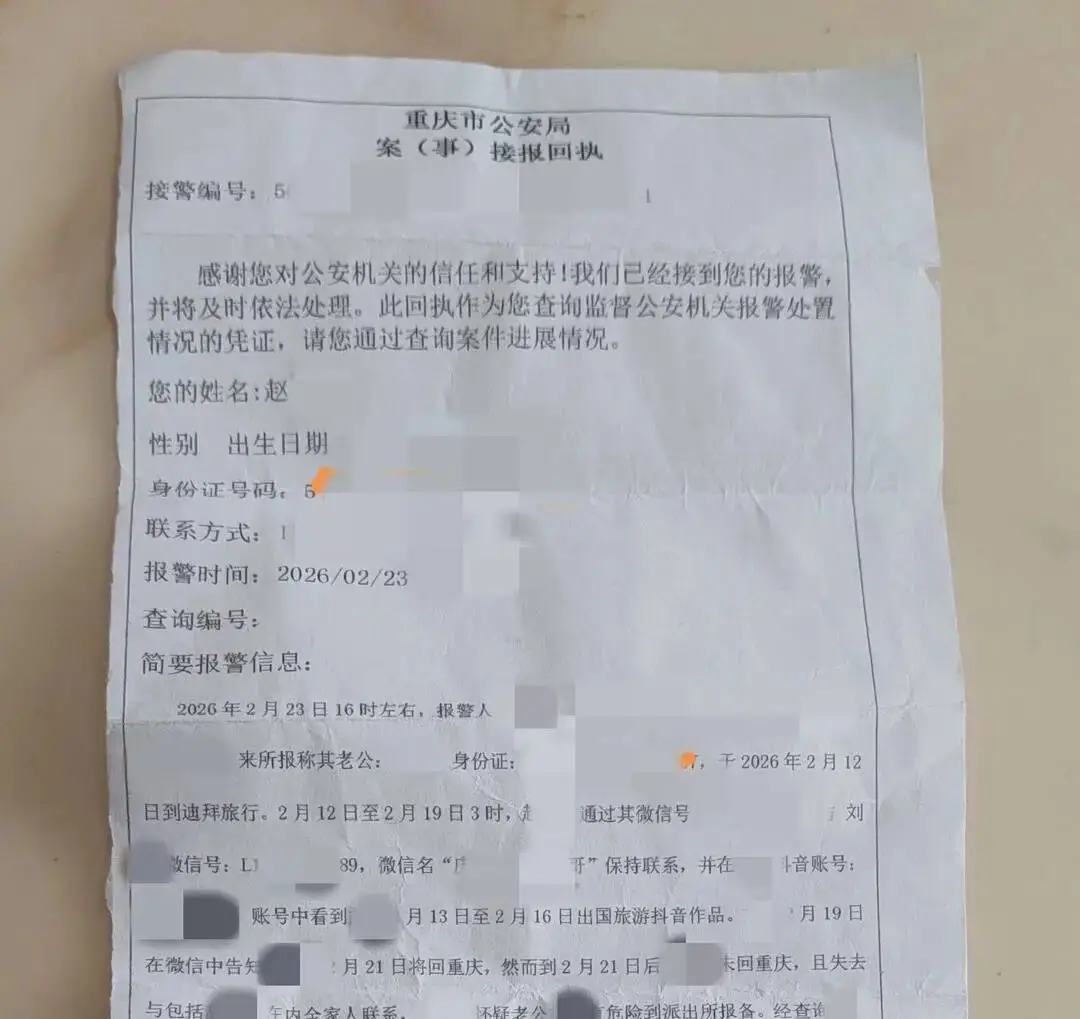 重庆市公安局
案（事）接报回执
接警编号：5
感谢您对公安机关的信任和支持！我们已经接到您的报警，
并将及时依法处理。此回执作为您查询监督公安机关报警处置
情况的凭证，请您通过查询案件进展情况。
您的姓名:赵
性别 出生日期
身份证号码：5
联系方式：1
报警时间：2026/02/23
查询编号：
简要报警信息：
2026年2月23日16时左右，报警人
来所报称其老公： 身份证： ，于2026年2月12
日到迪拜旅行。2月12日至2月19日3时， 通过其微信号 刘
微信号：L 89，微信名“ 哥”保持联系，并在 抖音账号：
账号中看到 月13日至2月16日出国旅游抖音作品。 月19日
在微信中告知 月21日将回重庆，然而到2月21日后 未回重庆，且失去
与包括 年内全家人联系， 怀疑老公 有危险到派出所报备。经查询